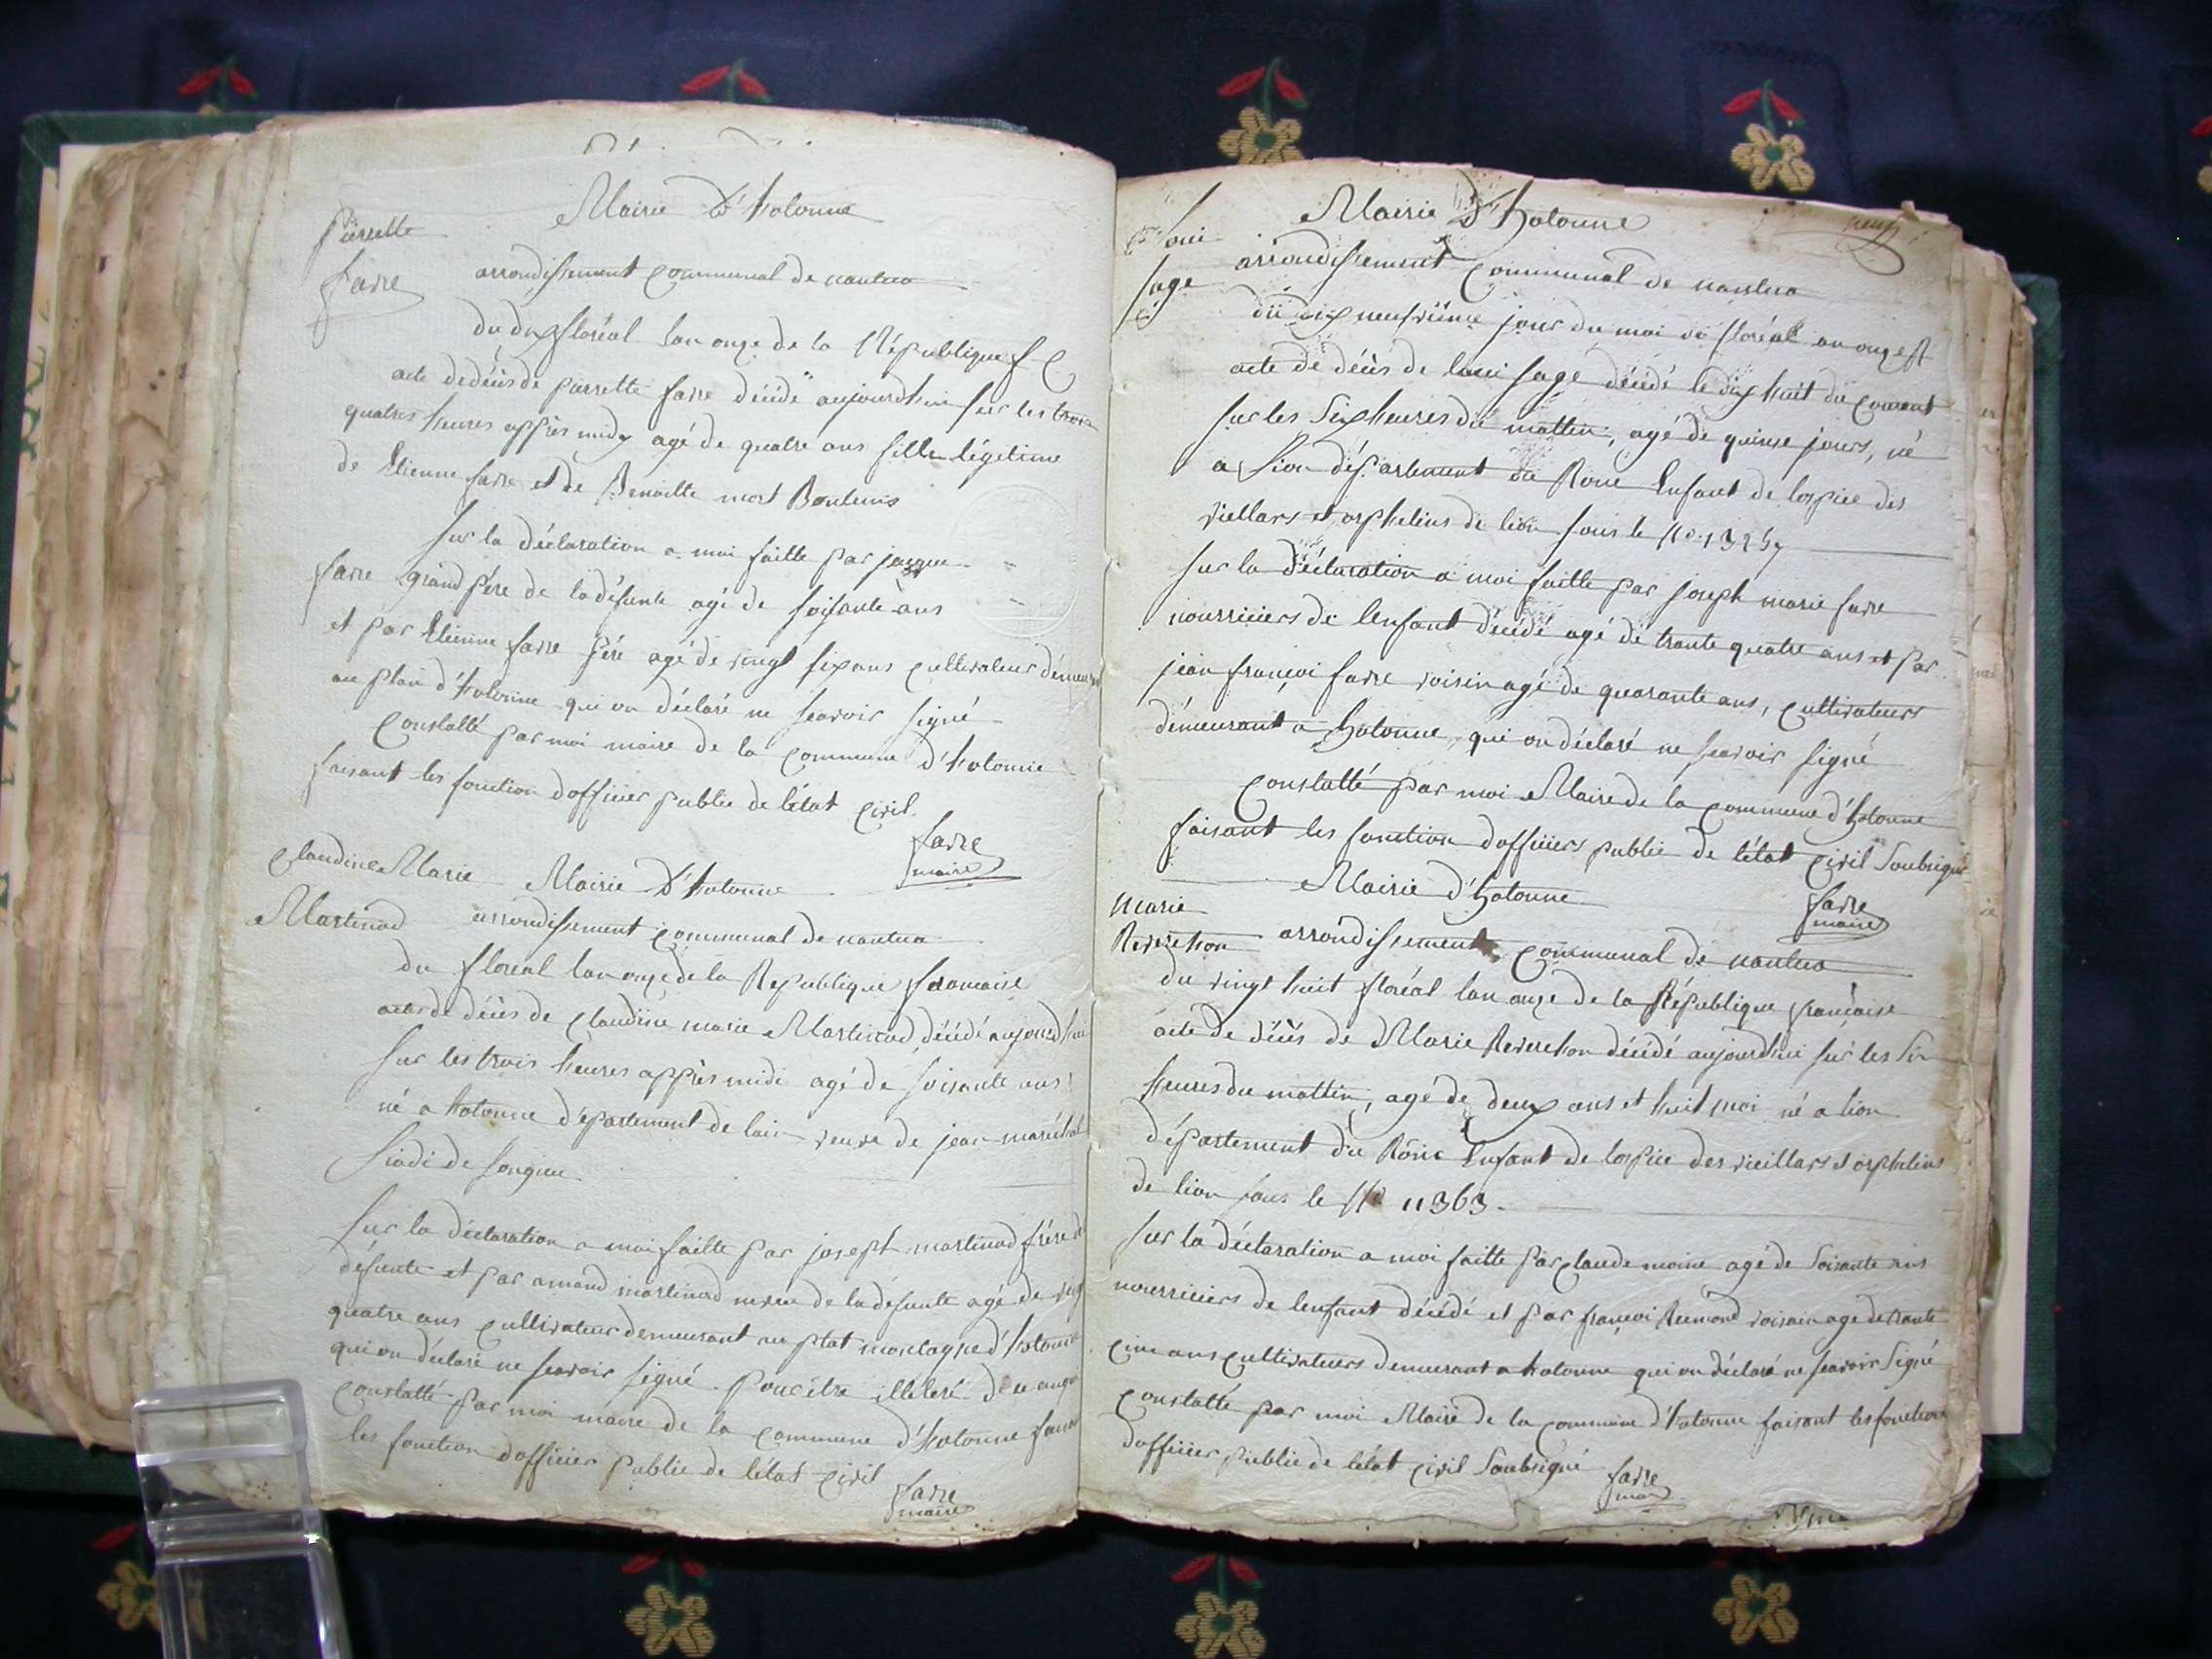 Mairie D'hotonne
Pierrette
favre
arrondissement communal de nantua
du dix floréal lan onze de la République f
acte dedécès de pierrette favre décédé aujourdhui sur les trois
quatres heures apprès midy agé de quatre ans fille légitime
de Etienne favre et de Benoitte mort
sur la déclaration a moi faitte par jacque
favre grand père de ladéfunte agé de soisante ans
et par Etienne favre père agé de vingt six ans cultivateur démeurant
au plan d'hotonne qui on déclaré ne scavoir signé
constatté par moi maire de la commune d'hotonne
faisant les fonction dofficier public de létat civil
favre
maire
Claudine Marie
Martinod
Mairie D'hotonne
arrondissement communal de nantua
du floréal lan onze de la République francaise
acte de décès de claudine marie Martinod décédé aujourdhui
sur les trois heures apprès midi agé de soisante ans
né a hotonne département de lain veuve de jean maréchal
de songieu
sur la déclaration a moi faitte par joseph martinod frère
défunte et par amand martinod neveu de ladéfunte agé de
quatre ans cultivateur demeurant au plat montagne d'hotonne
qui on déclaré ne scavoir signé pour être illetéré
constatté par moi maire de la commune d'hotonne
les fonction dofficier public de létat civil
favre
maire
Mairie D'hotonne
neuf
loui
sage
arrondissement communal de nantua
du dix neufvième jour du moi de floréal an onze
acte de décès de loui sage décédé le dix huit du courant
sur les six heures du mattin, agé de quinse jours, né
a lion département du Rone Enfant de lospice des
viellars et orphelins de lion sous le No.
sur la déclaration a moi faitte par joseph marie favre
nourriciers de lenfant décédé agé de trante quatre ans et par
jean françoi favre voisin agé de quarante ans, cultivateurs
démeurant a hotonne, qui on déclaré ne scavoir signé
constatté par moi Maire de la commune d'hotonne
faisant les fonction dofficiers public de létat civil soubsigné
favre
maire
Mairie d'hotonne
Marie
Reverchon
arrondissement communal de nantua
du vingt huit floréal lan onze de la République française
acte de décès de Marie Reverchon décédé aujourdhui sur les six
heures du mattin, agé de deux ans et huit moi né a lion
département du Rône Enfant de lospice des vieillars et orphelins
de lion sous le No 11363
sur la déclaration a moi faitte par claude moine agé de soisante ans
nourriciers de lenfant décédé et par françoi Reimond voisain age de trante
cinc ans cultivateurs demeurant a hotonne qui on déclaré ne scavoir signé
constatté par moi Maire de la commune d'hotonne faisant les fonction
dofficier public de létat civil soubsigné
favre
maire